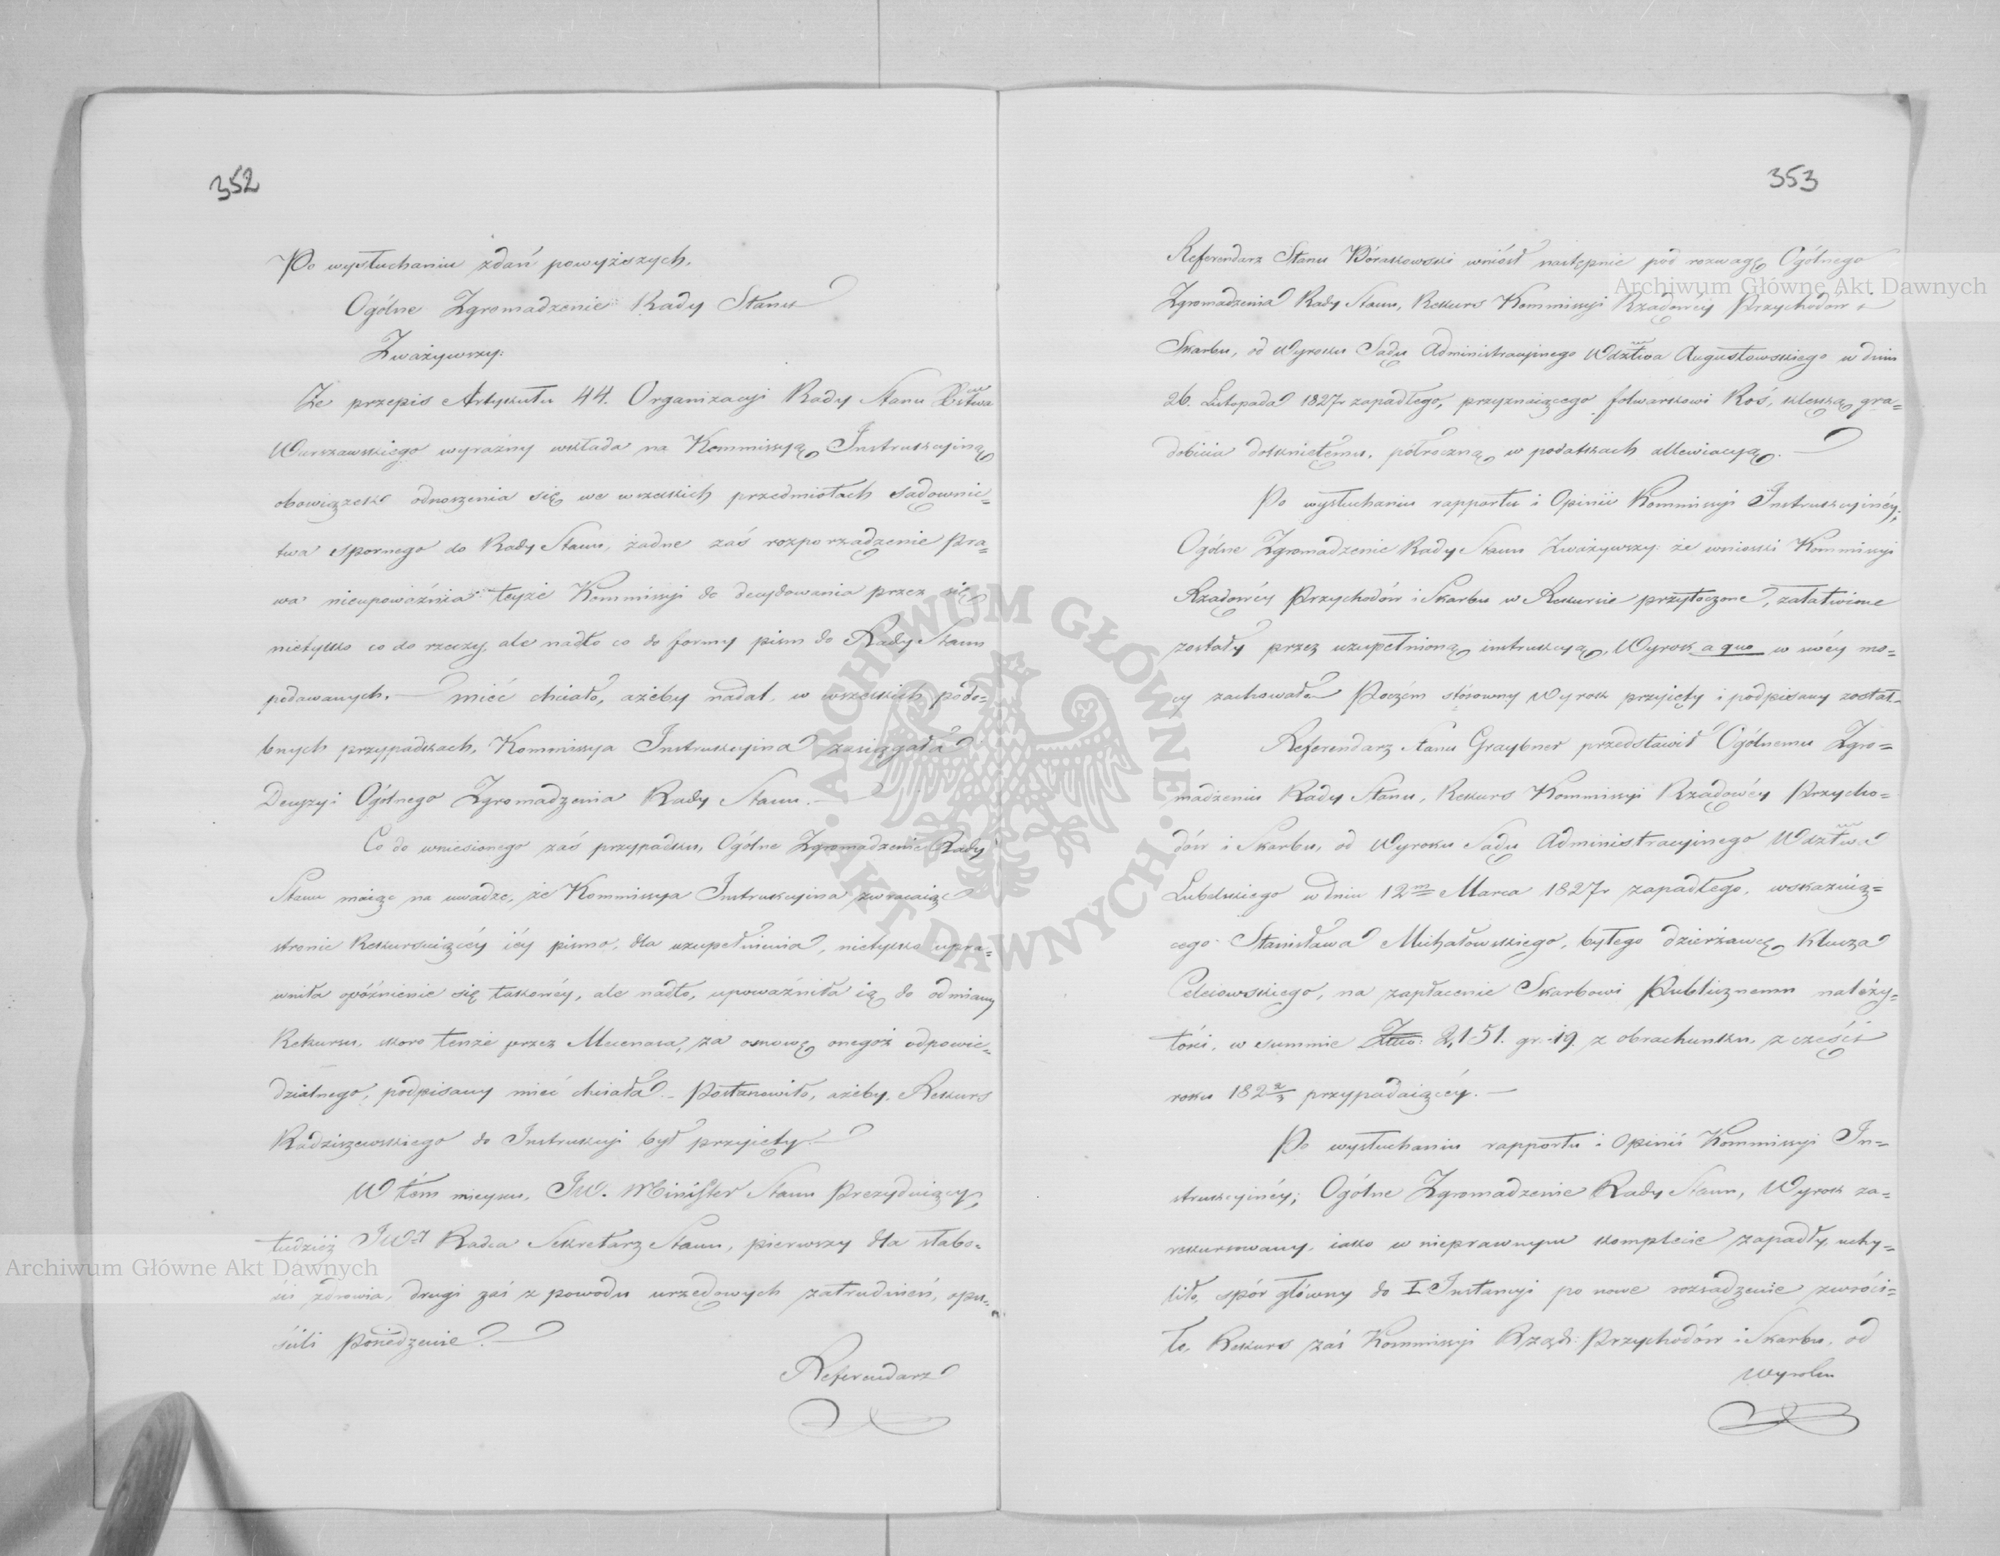 352
Po wysłuchaniu zdań powyższych.
Ogólne Zgromadzenie Rady Stanu
Zważywszy:
Że przepis Artykułu 44. Organizacyi Rady Stanu Xtwa
Warszawskiego wyraźny wkłada na Kommissyą Instrukcyiną
obowiązek odnoszenia się we wszelkich przedmiotach sądownic=
twa spornego do Rady Stanu, żadne zaś rozporządzenie Pra=
wa nieupoważnia teyże Kommissyi do decydowania przez się
nietylko co do rzeczy, ale nadto co do formy pism do Rady Stanu
podawanych. — mieć chciało, ażeby nadal, w wszelkich podo=
bnych przypadkach, Kommissya Instrukcyina zasięgała
Decyzyi Ogólnego Zgromadzenia Rady Stanu. —
Co do wniesionego zaś przypadku, Ogólne Zgromadzenie Rady
Stanu maiąc na uwadze, że Kommissya Instrukcyina zwracaiąc
stronie Rekursuiącéy iéy pismo, dla uzupełnienia, nietylko upra=
wniła opóźnienie się takowéy, ale nadto, upoważniła ią do odmiany
Rekursu, skoro tenże przez Mecenasa, za osnowę onegoż odpowie=
dzialnego, podpisany mieć chciała. – Postanowiło, ażeby Rekurs
Radziszewskiego do Instrukcyi był przyięty. —
W tém mieyscu, JW. Minister Stanu Prezyduiący,
tudzież JW. Radca Sekretarz Stanu, pierwszy dla słabo=
ści zdrowia, drugi zaś z powodu urzędowych zatrudnień, opu=
ścili Posiedzenie. —
Referendarz
353
Referendarz Stanu wniósł następnie pod rozwagę Ogólnego
Zgromadzenia Rady Stanu, Rekurs Kommissyi Rządowéy Przychodów i
Skarbu, od Wyroku Sądu Administracyinego Wdztwa Augustowskiego w dniu
26. Listopada 1827r zapadłego, przyznaiącego folwarkowi Koś, klęską gra=
dobicia dotkniętemu, półroczną w podatkach allewiacyą. —
Po wysłuchaniu rapportu i Opinii Kommissyi Instrukcyinéy,
Ogólne Zgromadzenie Rady Stanu Zważywszy: że wnioski Kommissyi
Rządowéy Przychodów i Skarbu w Rekursie przytoczone, załatwione
zostały przez uzupełnioną instrukcyą, Wyrok a quo w swéy mo=
cy zachowało. Poczém stósowny Wyrok przyięty i podpisany został.
Referendarz Stanu Graybner przedstawił Ogólnemu Zgro=
madzeniu Rady Stanu, Rekurs Kommissyi Rządowéy Przycho=
dów i Skarbu, od Wyroku Sądu Administracyinego Wdztwa
Lubelskiego w dniu 12m Marca 1827r zapadłego, wskazuią=
cego Stanisława Michałowskiego, byłego dzierżawcę Klucza
Celeiowskiego, na zapłacenie Skarbowi Publicznemu należy=
tości, w summie 2,151. gr. 19. z obrachunku, z części
roku 182 2/3 przypadaiącéy. —
Po wysłuchaniu rapportu i Opinii Kommissyi In=
strukcyinéy; Ogólne Zgromadzenie Rady Stanu, Wyrok za=
rekursowany, iako w nieprawnym komplecie zapadły, uchy=
liło, spór główny do I Instancyi po nowe rozsądzenie zwróci=
ło, Rekurs zaś Kommissyi Rząd: Przychodów i Skarbu, od
Wyroku
Archiwum Główne Akt Dawnych
Archiwum Główne Akt Dawnych
ARCHIWUM GŁÓWNE · AKT DAWNYCH ·